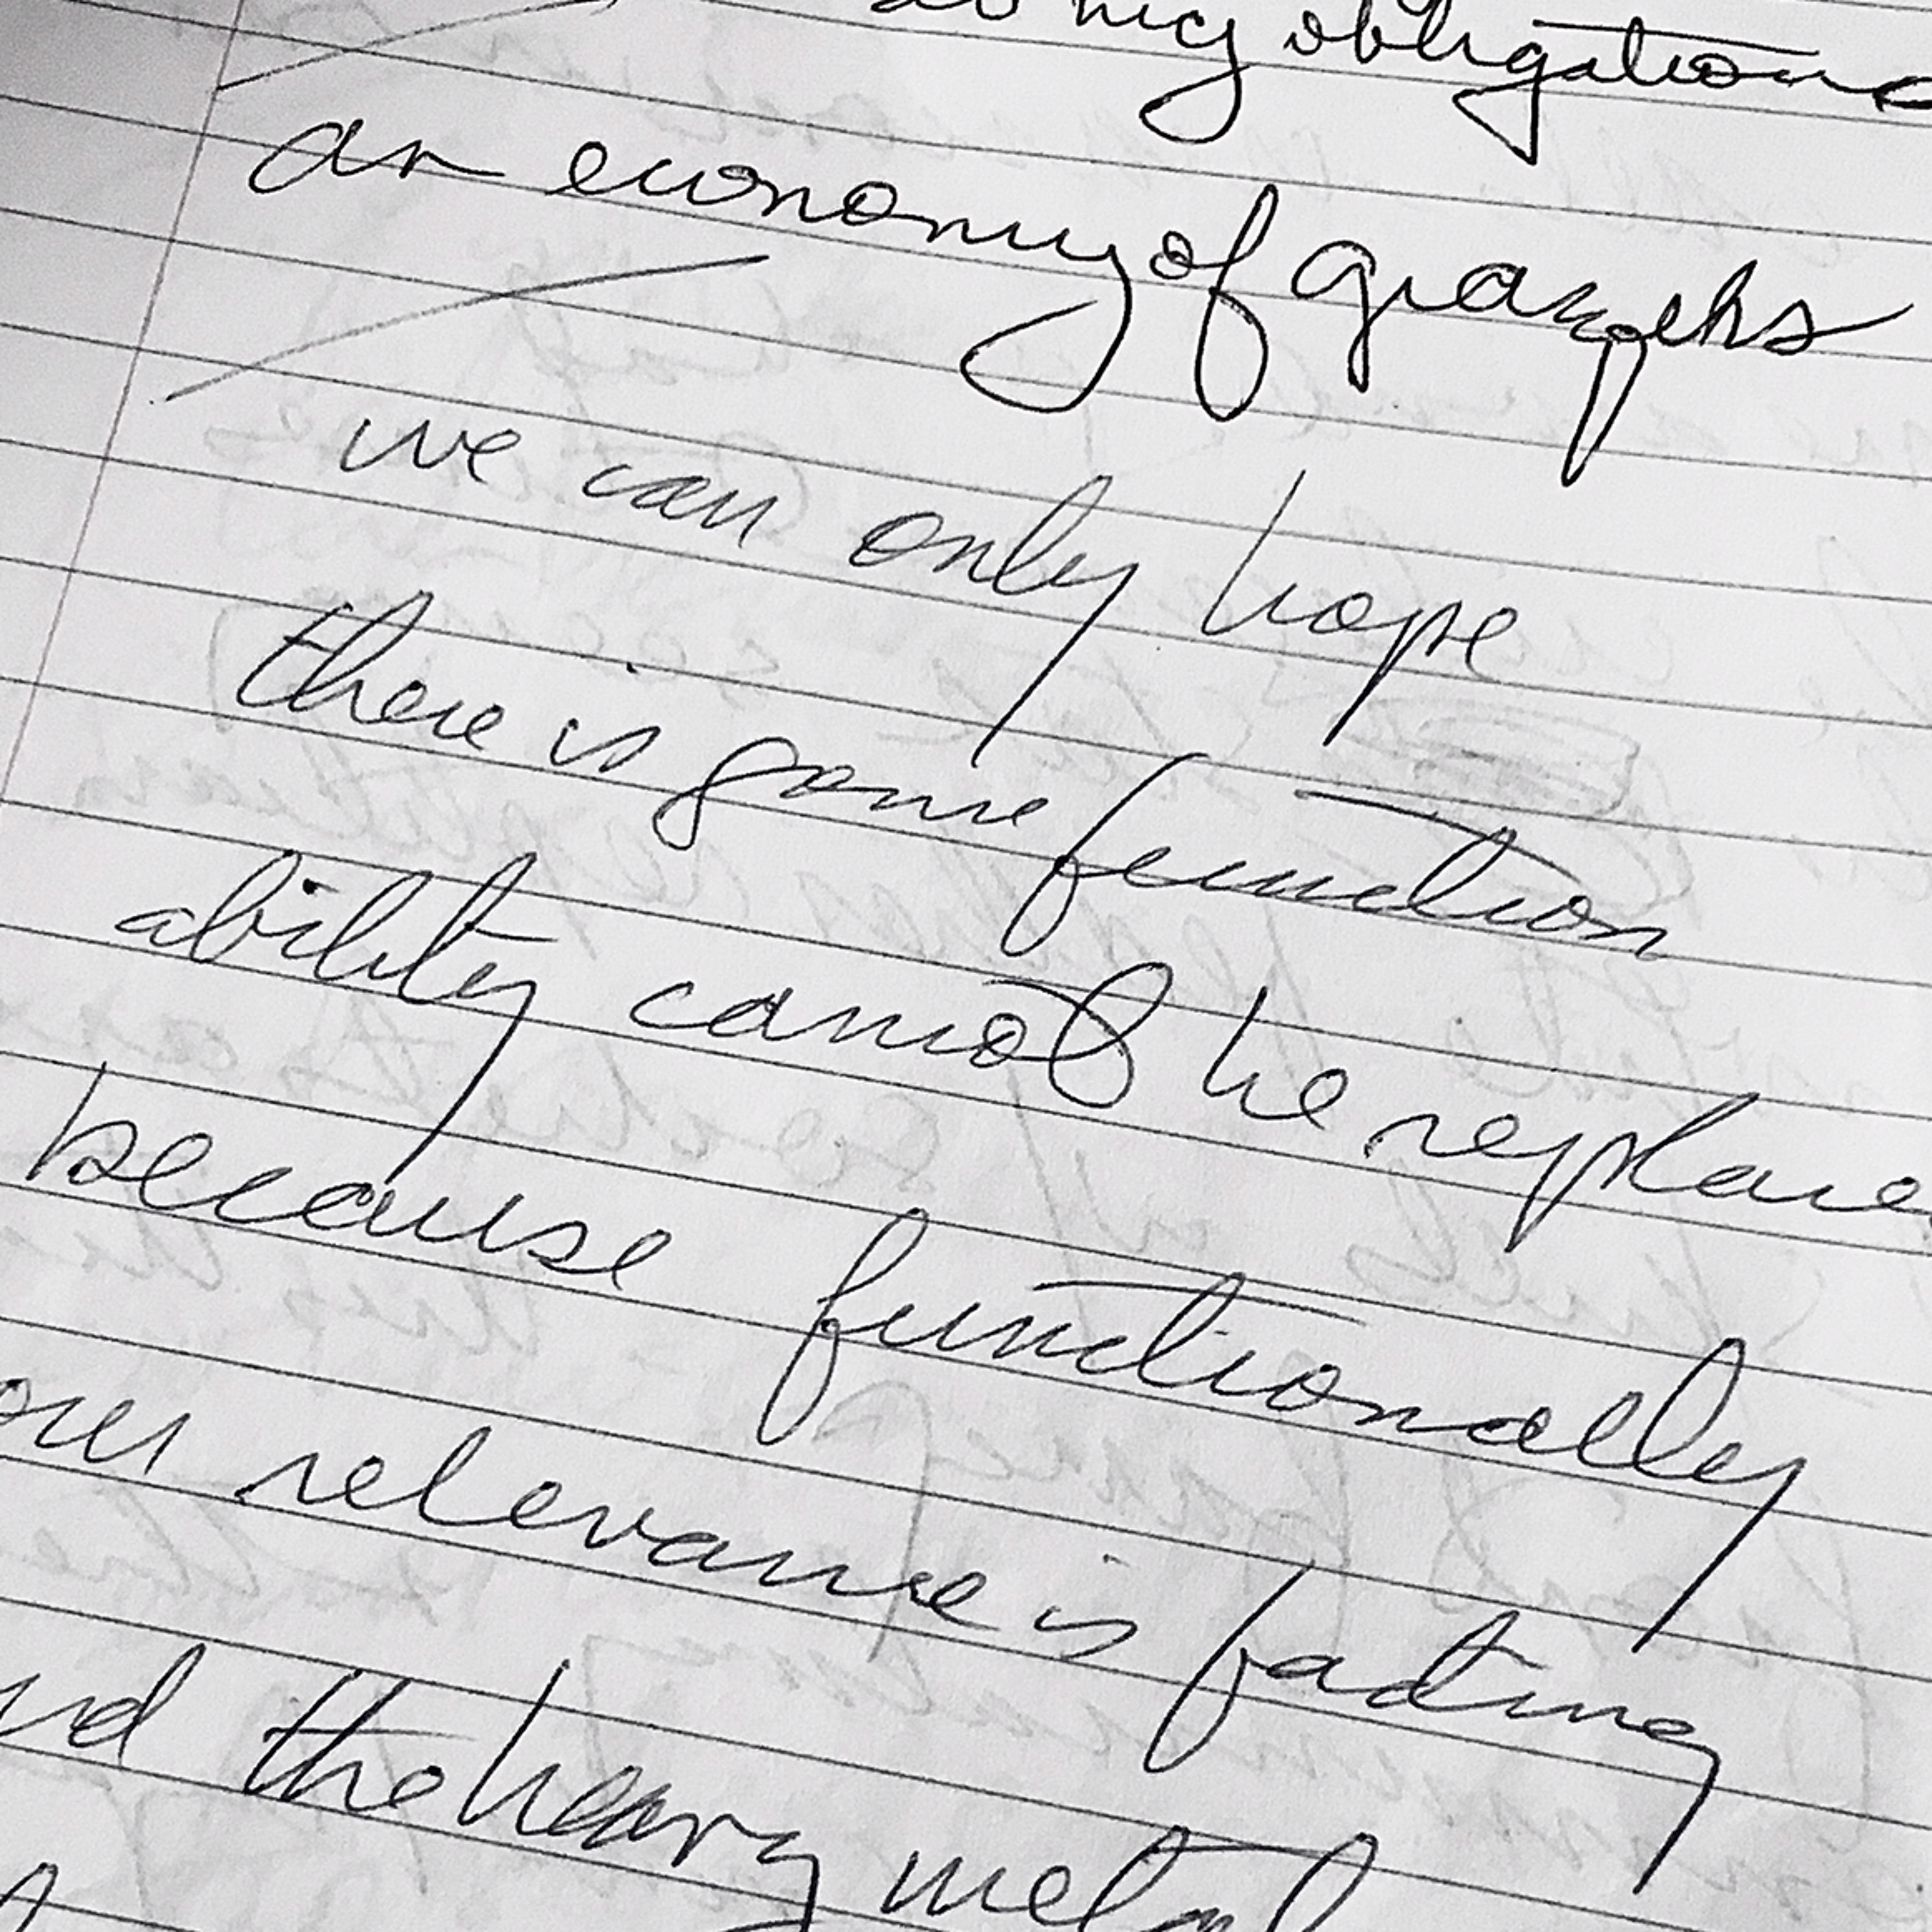 my obligations
an economy of graphs
we can only hope
there is some function
ability cannot be replace
because functionally
our relevance is fading
nd the heavy metal